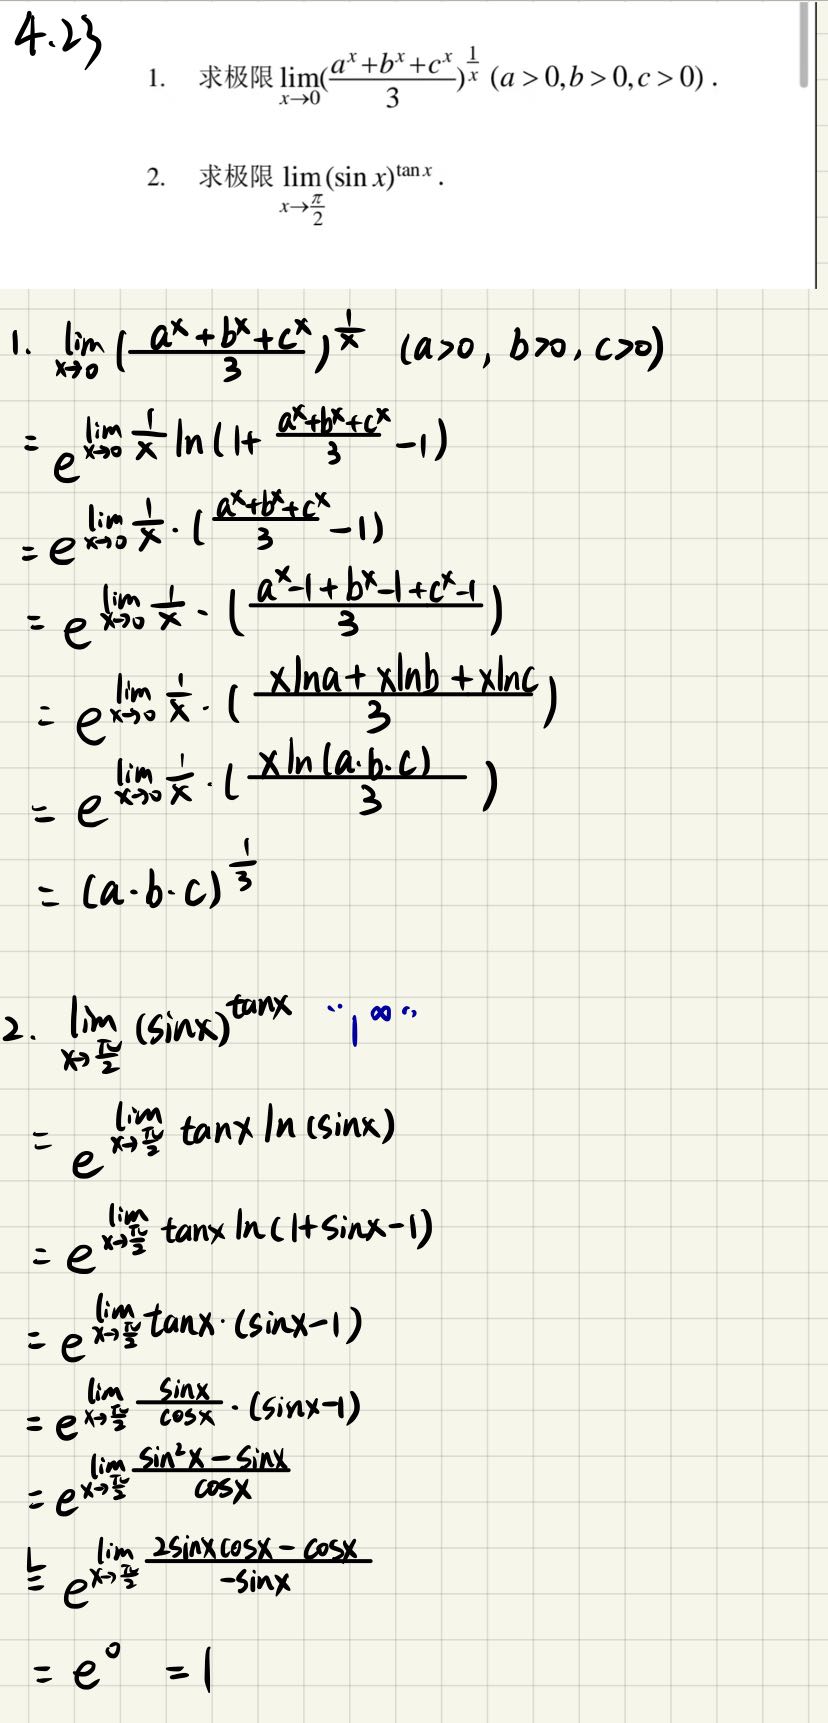 4.23
1. 求极限 lim x→0 (a^x+b^x+c^x / 3)^(1/x) (a>0,b>0,c>0).
2. 求极限 lim x→π/2 (sin x)^(tan x).
1. lim x→0 (a^x+b^x+c^x / 3)^(1/x) (a>0, b>0, c>0)
= e^(lim x→0 1/x ln(1+ a^x+b^x+c^x / 3 -1))
= e^(lim x→0 1/x · (a^x+b^x+c^x / 3 -1))
= e^(lim x→0 1/x · (a^x-1+b^x-1+c^x-1 / 3))
= e^(lim x→0 1/x · (xlna+xlnb+xlnc / 3))
= e^(lim x→0 1/x · (xln(a·b·c) / 3))
= (a·b·c)^(1/3)
2. lim x→π/2 (sinx)^(tanx) "1^∞"
= e^(lim x→π/2 tanx ln(sinx))
= e^(lim x→π/2 tanx ln(1+sinx-1))
= e^(lim x→π/2 tanx·(sinx-1))
= e^(lim x→π/2 sinx/cosx · (sinx-1))
= e^(lim x→π/2 sin²x-sinx / cosx)
L= e^(lim x→π/2 2sinxcosx-cosx / -sinx)
= e^0 = 1